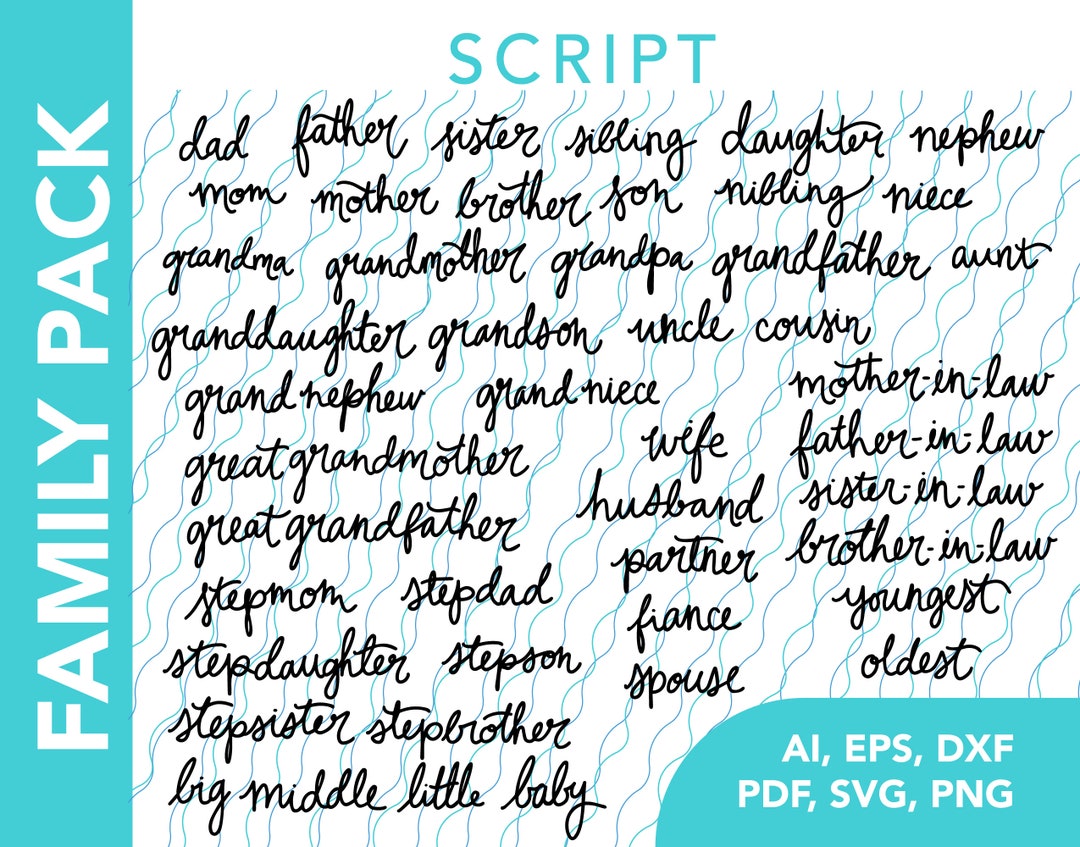 FAMILY PACK
SCRIPT
dad father sister sibling daughter nephew
mom mother brother son nibling niece
grandma grandmother grandpa grandfather aunt
granddaughter grandson uncle cousin
grand nephew grand niece
great grandmother
great grandfather
stepmom stepdad
stepdaughter stepson
stepsister stepbrother
big middle little baby
wife
husband
partner
fiance
spouse
mother-in-law
father-in-law
sister-in-law
brother-in-law
youngest
oldest
AI, EPS, DXF
PDF, SVG, PNG